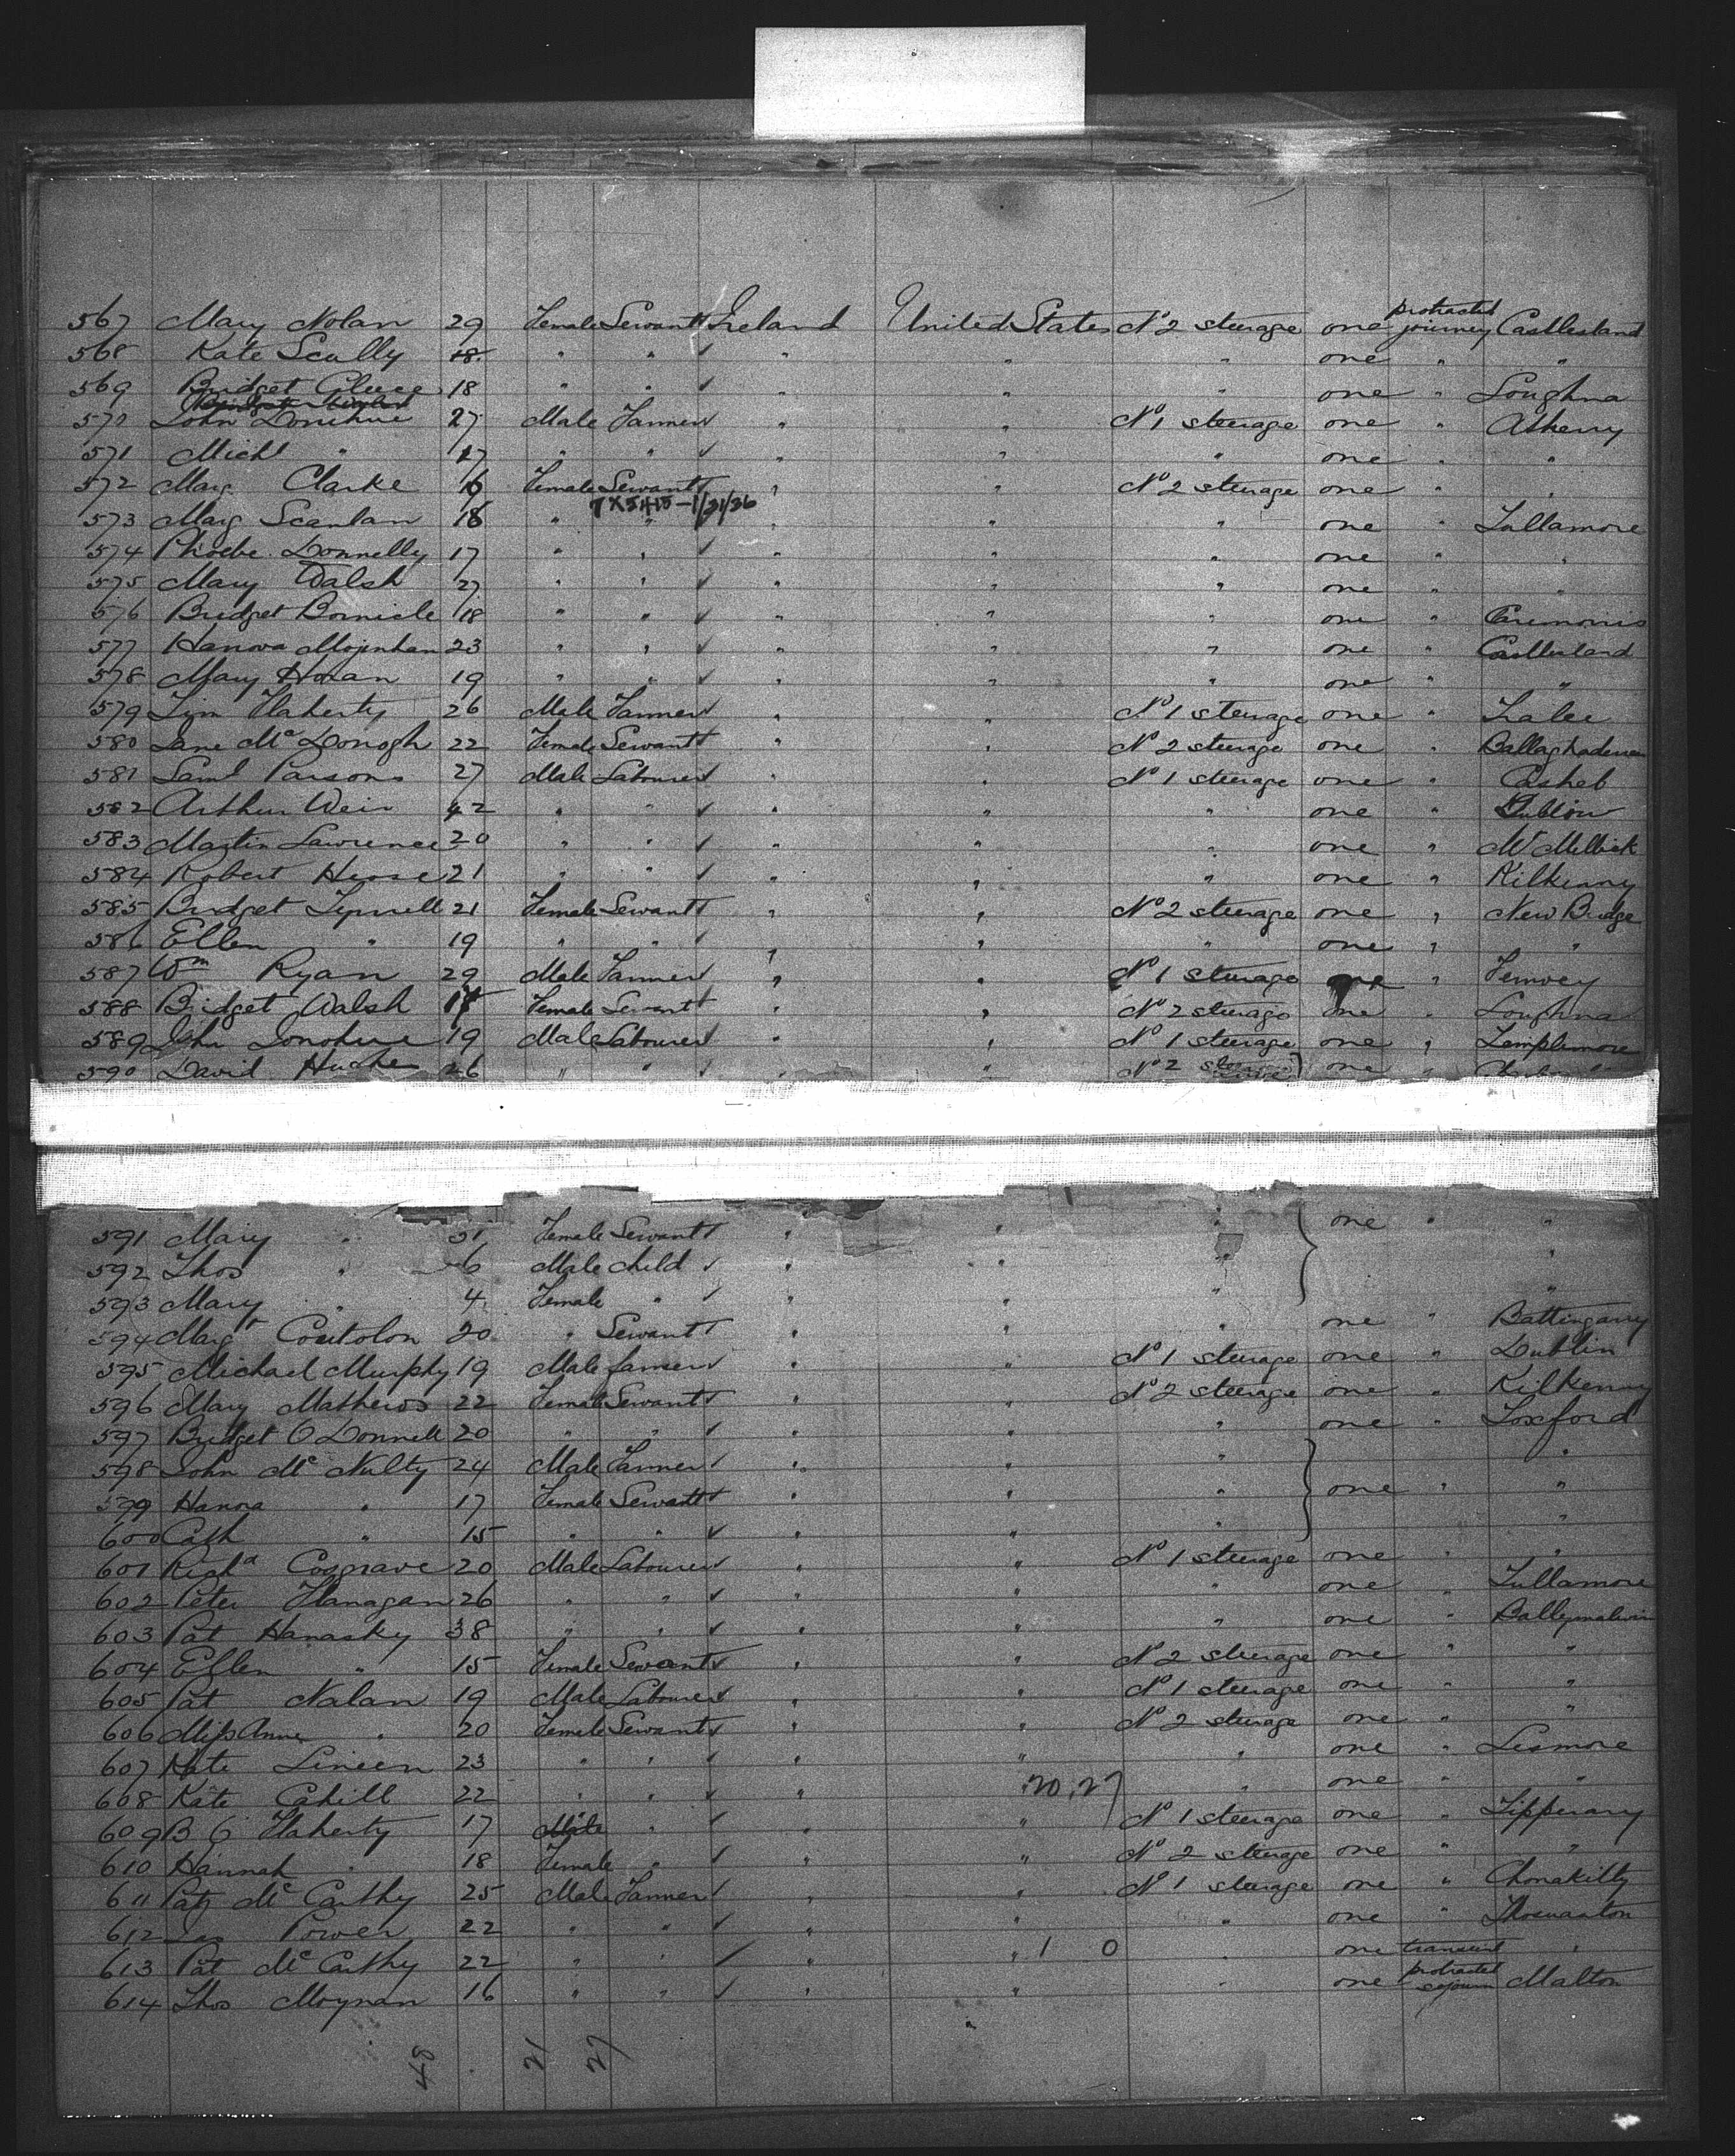 567 Mary Nolan 29 Female Servant Ireland United States No 2 steerage one protracted journey Castlesland
568 Kate Scully 18 " " " " " one " "
569 Bridget 18 " " " " " one " Loughna
570 John Donohue 27 Male Farmer " " No 1 steerage one " Athenry
571 Michl " 17 " " " " " one " "
572 Marg Clarke 16 Female Servant " " No 2 steerage one " "
7X5415-1/31/36
573 Marg Scanlan 18 " " " " " one " Tullamore
574 Phoebe Donnelly 17 " " " " " one " "
575 Mary Walsh 27 " " " " " one " "
576 Bridget Bornicle 18 " " " " " one "
577 Hanora Mojinhan 23 " " " " " one " Castlesland
578 Mary Horan 19 " " " " " one " "
579 Tim Flaherty 26 Male Farmer " " No 1 steerage one " Tralee
580 Jane Mc Donogh 22 Female Servant " " No 2 steerage one " Ballaghadereen
581 Saml Parsons 27 Male Labourer " " No 1 steerage one "
582 Arthur Weir 42 " " " " " one " Dublin
583 Martin Lawrence 20 " " " " " one " Mt Mellick
584 Robert 21 " " " " " one " Kilkenny
585 Bridget Tyrrell 21 Female Servant " " No 2 steerage one " New Bridge
586 Ellen " 19 " " " " " one " "
587 Wm Ryan 29 Male Farmer " " No 1 steerage one " Fermoy
588 Bridget Walsh 17 Female Servant " " No 2 steerage one " Loughna
589 John Donohue 19 Male Labourer " " No 1 steerage one " Templemore
590 David Hughes 26 " " " " No 2 one "
591 Mary " 31 Female Servant " " " one " "
592 Thos " 6 Male child " " " "
593 Mary " 4 Female " " " " "
594 Margt 20 " Servant " " " one " Battingarry
595 Michael Murphy 19 Male farmer " " No 1 steerage one " Dublin
596 Mary Mathews 22 Female Servant " " No 2 steerage one " Kilkenny
597 Bridget O Donnell 20 " " " " " one " Foxford
598 John Mc Nulty 24 Male Farmer " " " "
599 Hanna " 17 Female Servant " " " one " "
600 Cath " 15 " " " " " "
601 Richd Cosgrave 20 Male Labourer " " No 1 steerage one " "
602 Peter Flanagan 26 " " " " " one " Tullamore
603 Pat Hanasky 38 " " " " " one "
604 Ellen " 15 Female Servant " " No 2 steerage one " "
605 Pat Nalan 19 Male Labourer " " No 1 steerage one " "
606 Miss Anne " 20 Female Servant " " No 2 steerage one " "
607 Kate Lineen 23 " " " " " one " Lismore
608 Kate Cahill 22 " " " 20,27 " one " "
609 B O Flaherty 17 Male " " " No 1 steerage one " Tipperary
610 Hannah " 18 Female " " " No 2 steerage one " "
611 Pat Mc Carthy 25 Male Farmer " " No 1 steerage one " Clonakilty
612 Jas Power 22 " " " " " one "
613 Pat Mc Carthy 22 " " " " 1 0 " one transient "
614 Thos Moynan 16 " " " " " one protracted sojourn Malton
48 21 27